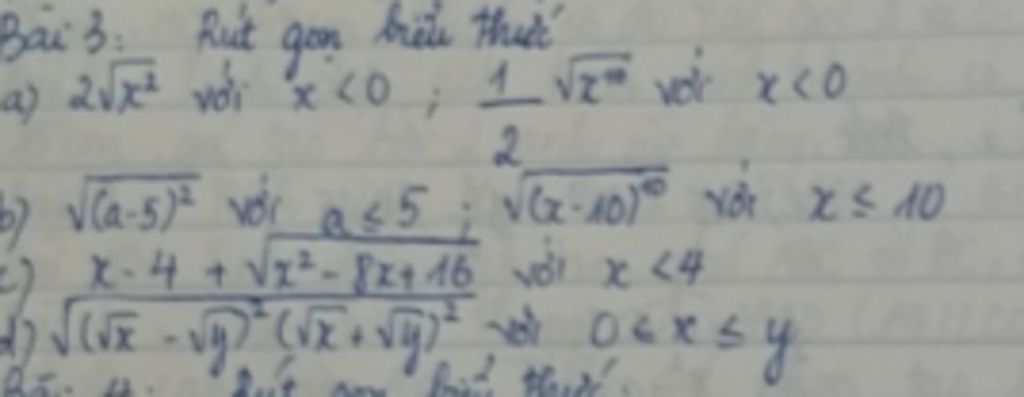 Bài 3: Rút gọn biểu thức
a) 2√x² với x < 0 ; 1/2 √x¹⁰ với x < 0
b) √(a-5)² với a ≤ 5 ; √(x-10)¹⁰ với x ≤ 10
c) x - 4 + √x² - 8x + 16 với x < 4
d) √(√x - √y)² (√x + √y)² với 0 ≤ x ≤ y
Bài 4: Rút gọn biểu thức: